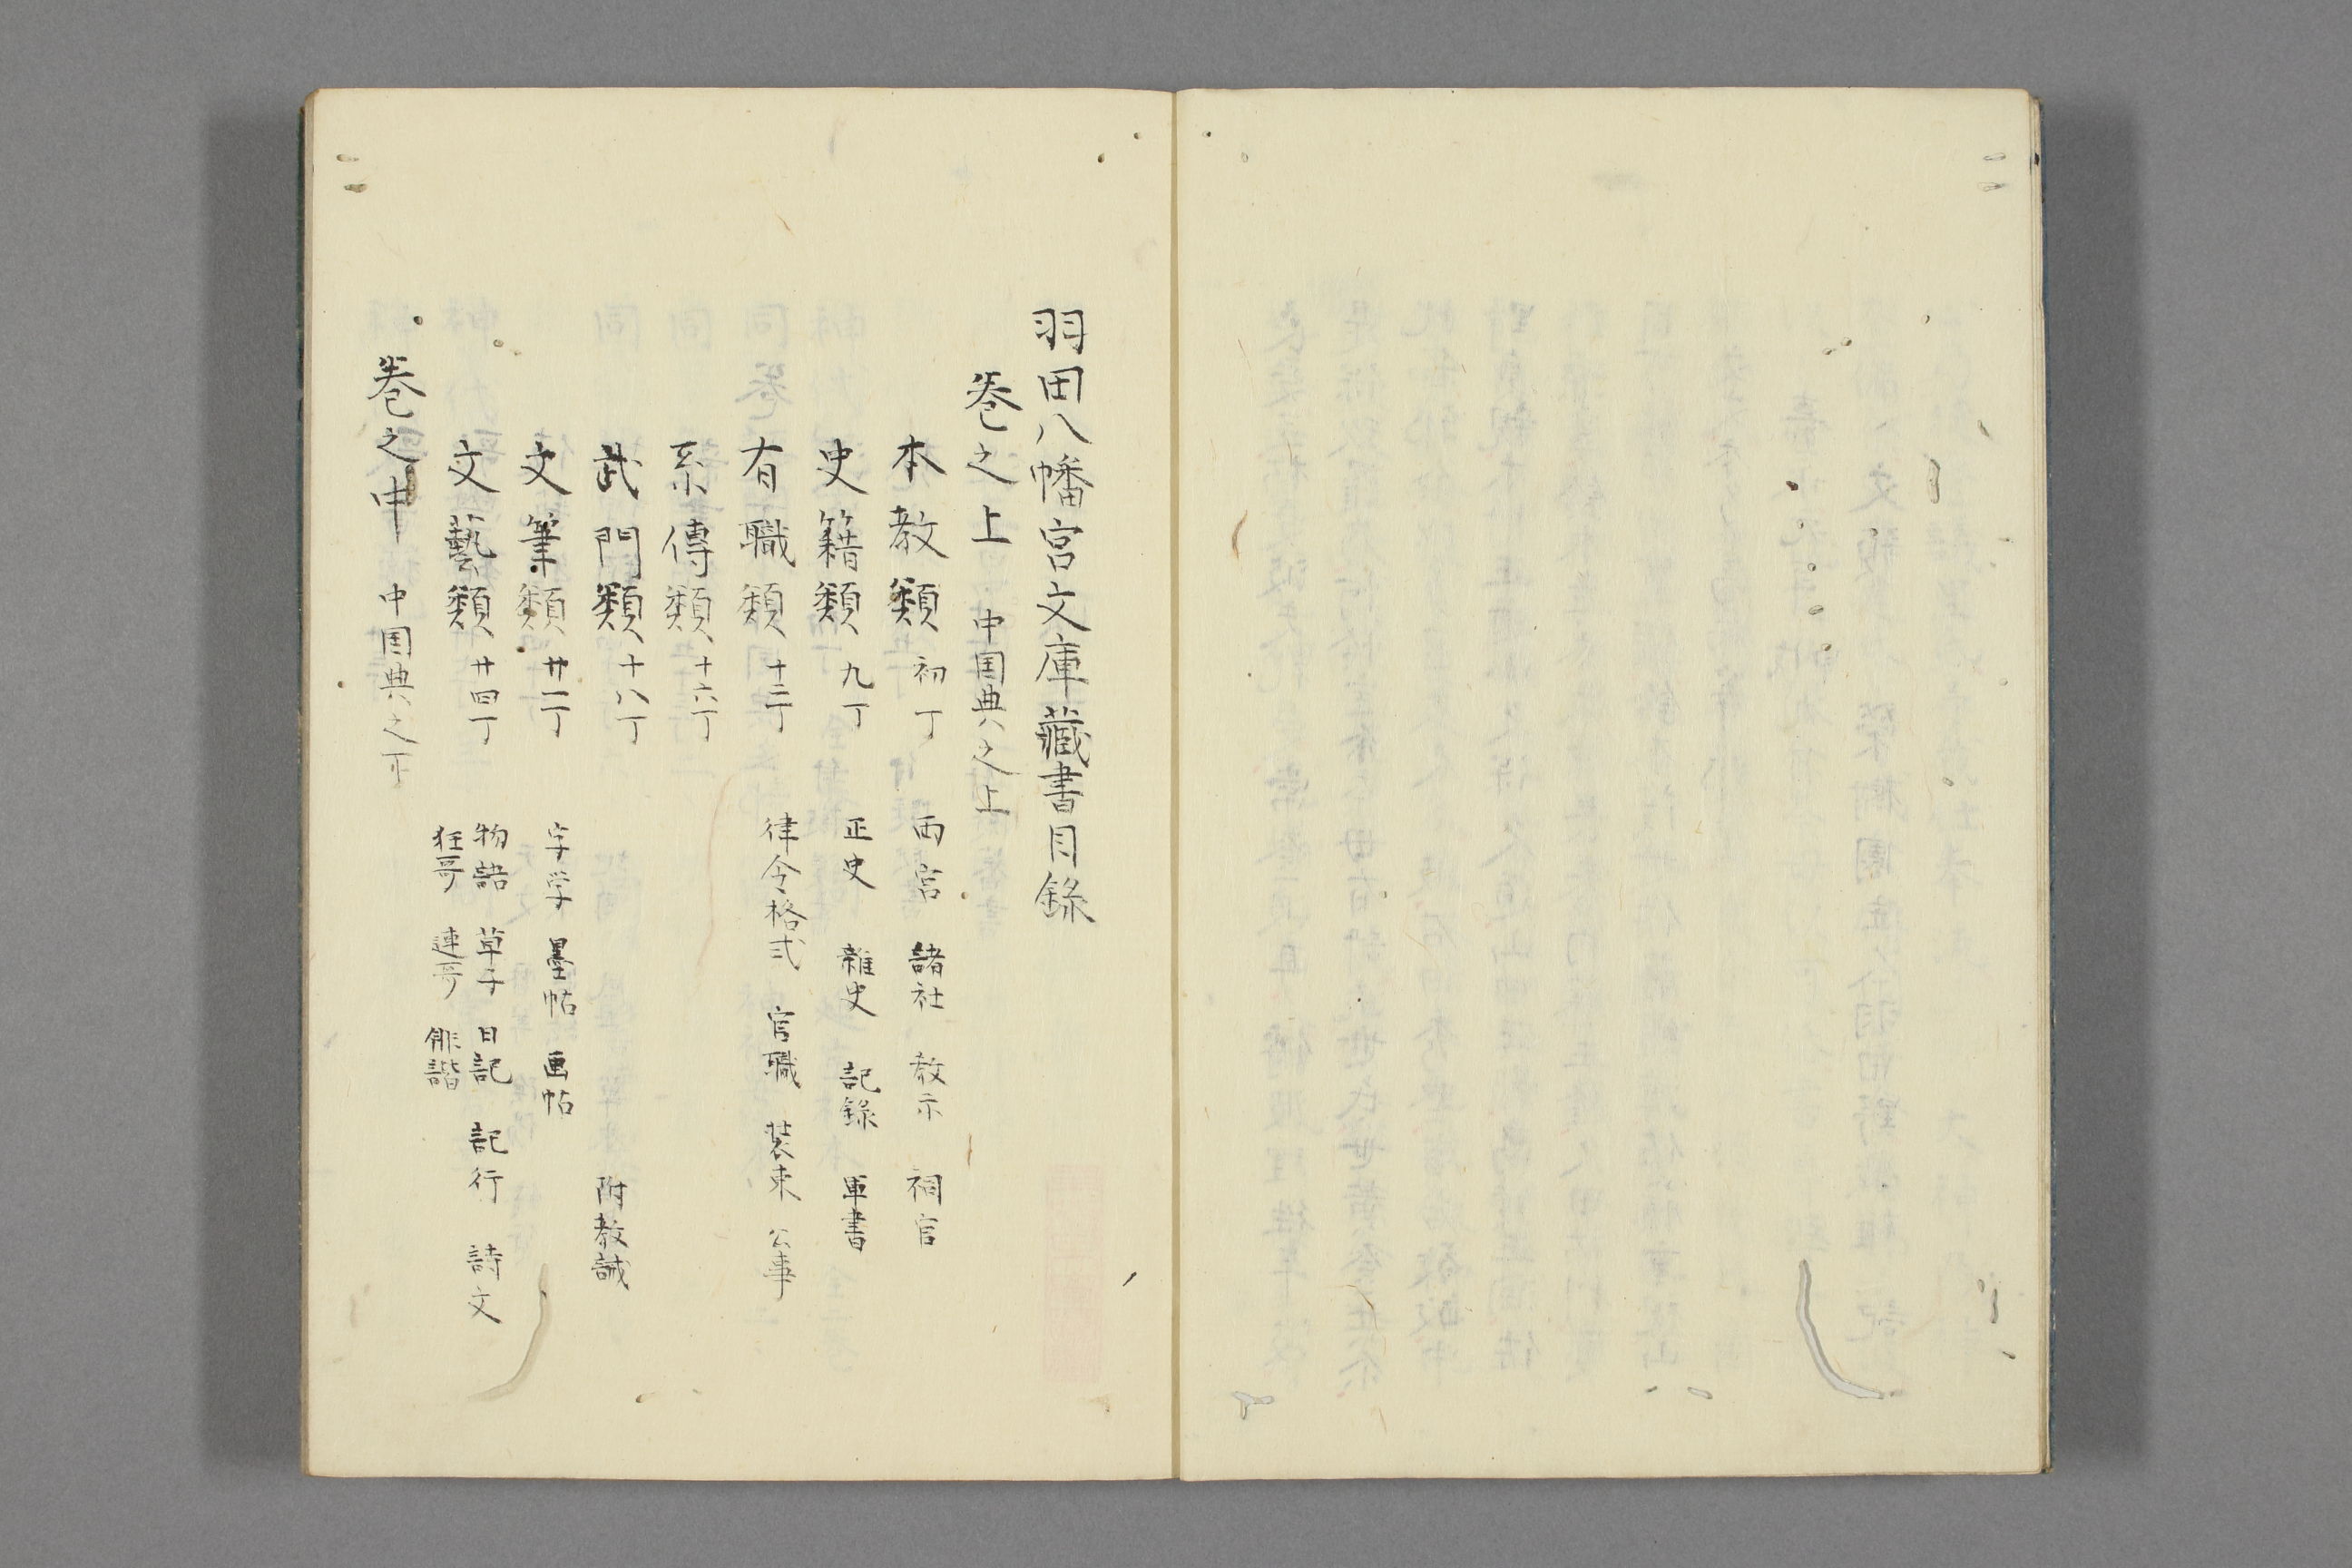 羽田八幡宮文庫藏書目錄
巻之上 中国典之上
本教類 初丁 両宮 諸社 教示 祠官
史籍類 九丁 正史 雑史 記録 軍書
有職類 十二丁 律令格式 官職 装束 公事
系傳類 十六丁
武門類 十八丁 附教誡
文筆類 廿一丁 字学 墨帖 画帖
文藝類 廿四丁 物語 草子 日記 記行 詩文
狂哥 連哥 俳諧
巻之中 中国典之下